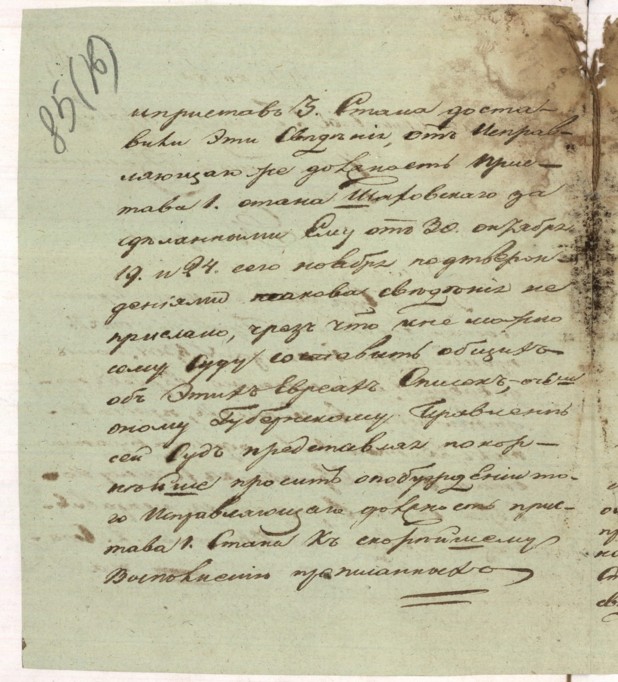 85 (16)
и приставъ 3. Стана доста-
вили Эти Сведѣнія, отъ Исправ-
ляющаго же должность Прис-
тава 1. стана за
сдѣланными Ему отъ 30. октября
19. и 24. сего ноября подтверж-
деніями таковаго сведѣнія не
прислано, чрезъ что не можно
сему Суду составить общихъ
объ Этихъ Евреахъ Списокъ,
оному Губернскому Правленію
сей Судъ представляя покор-
нѣйше проситъ о побужденіи то-
го Исправляющаго должность прис-
тава 1. Стана Къ скорѣйшему
Восполненію прописанныхъ